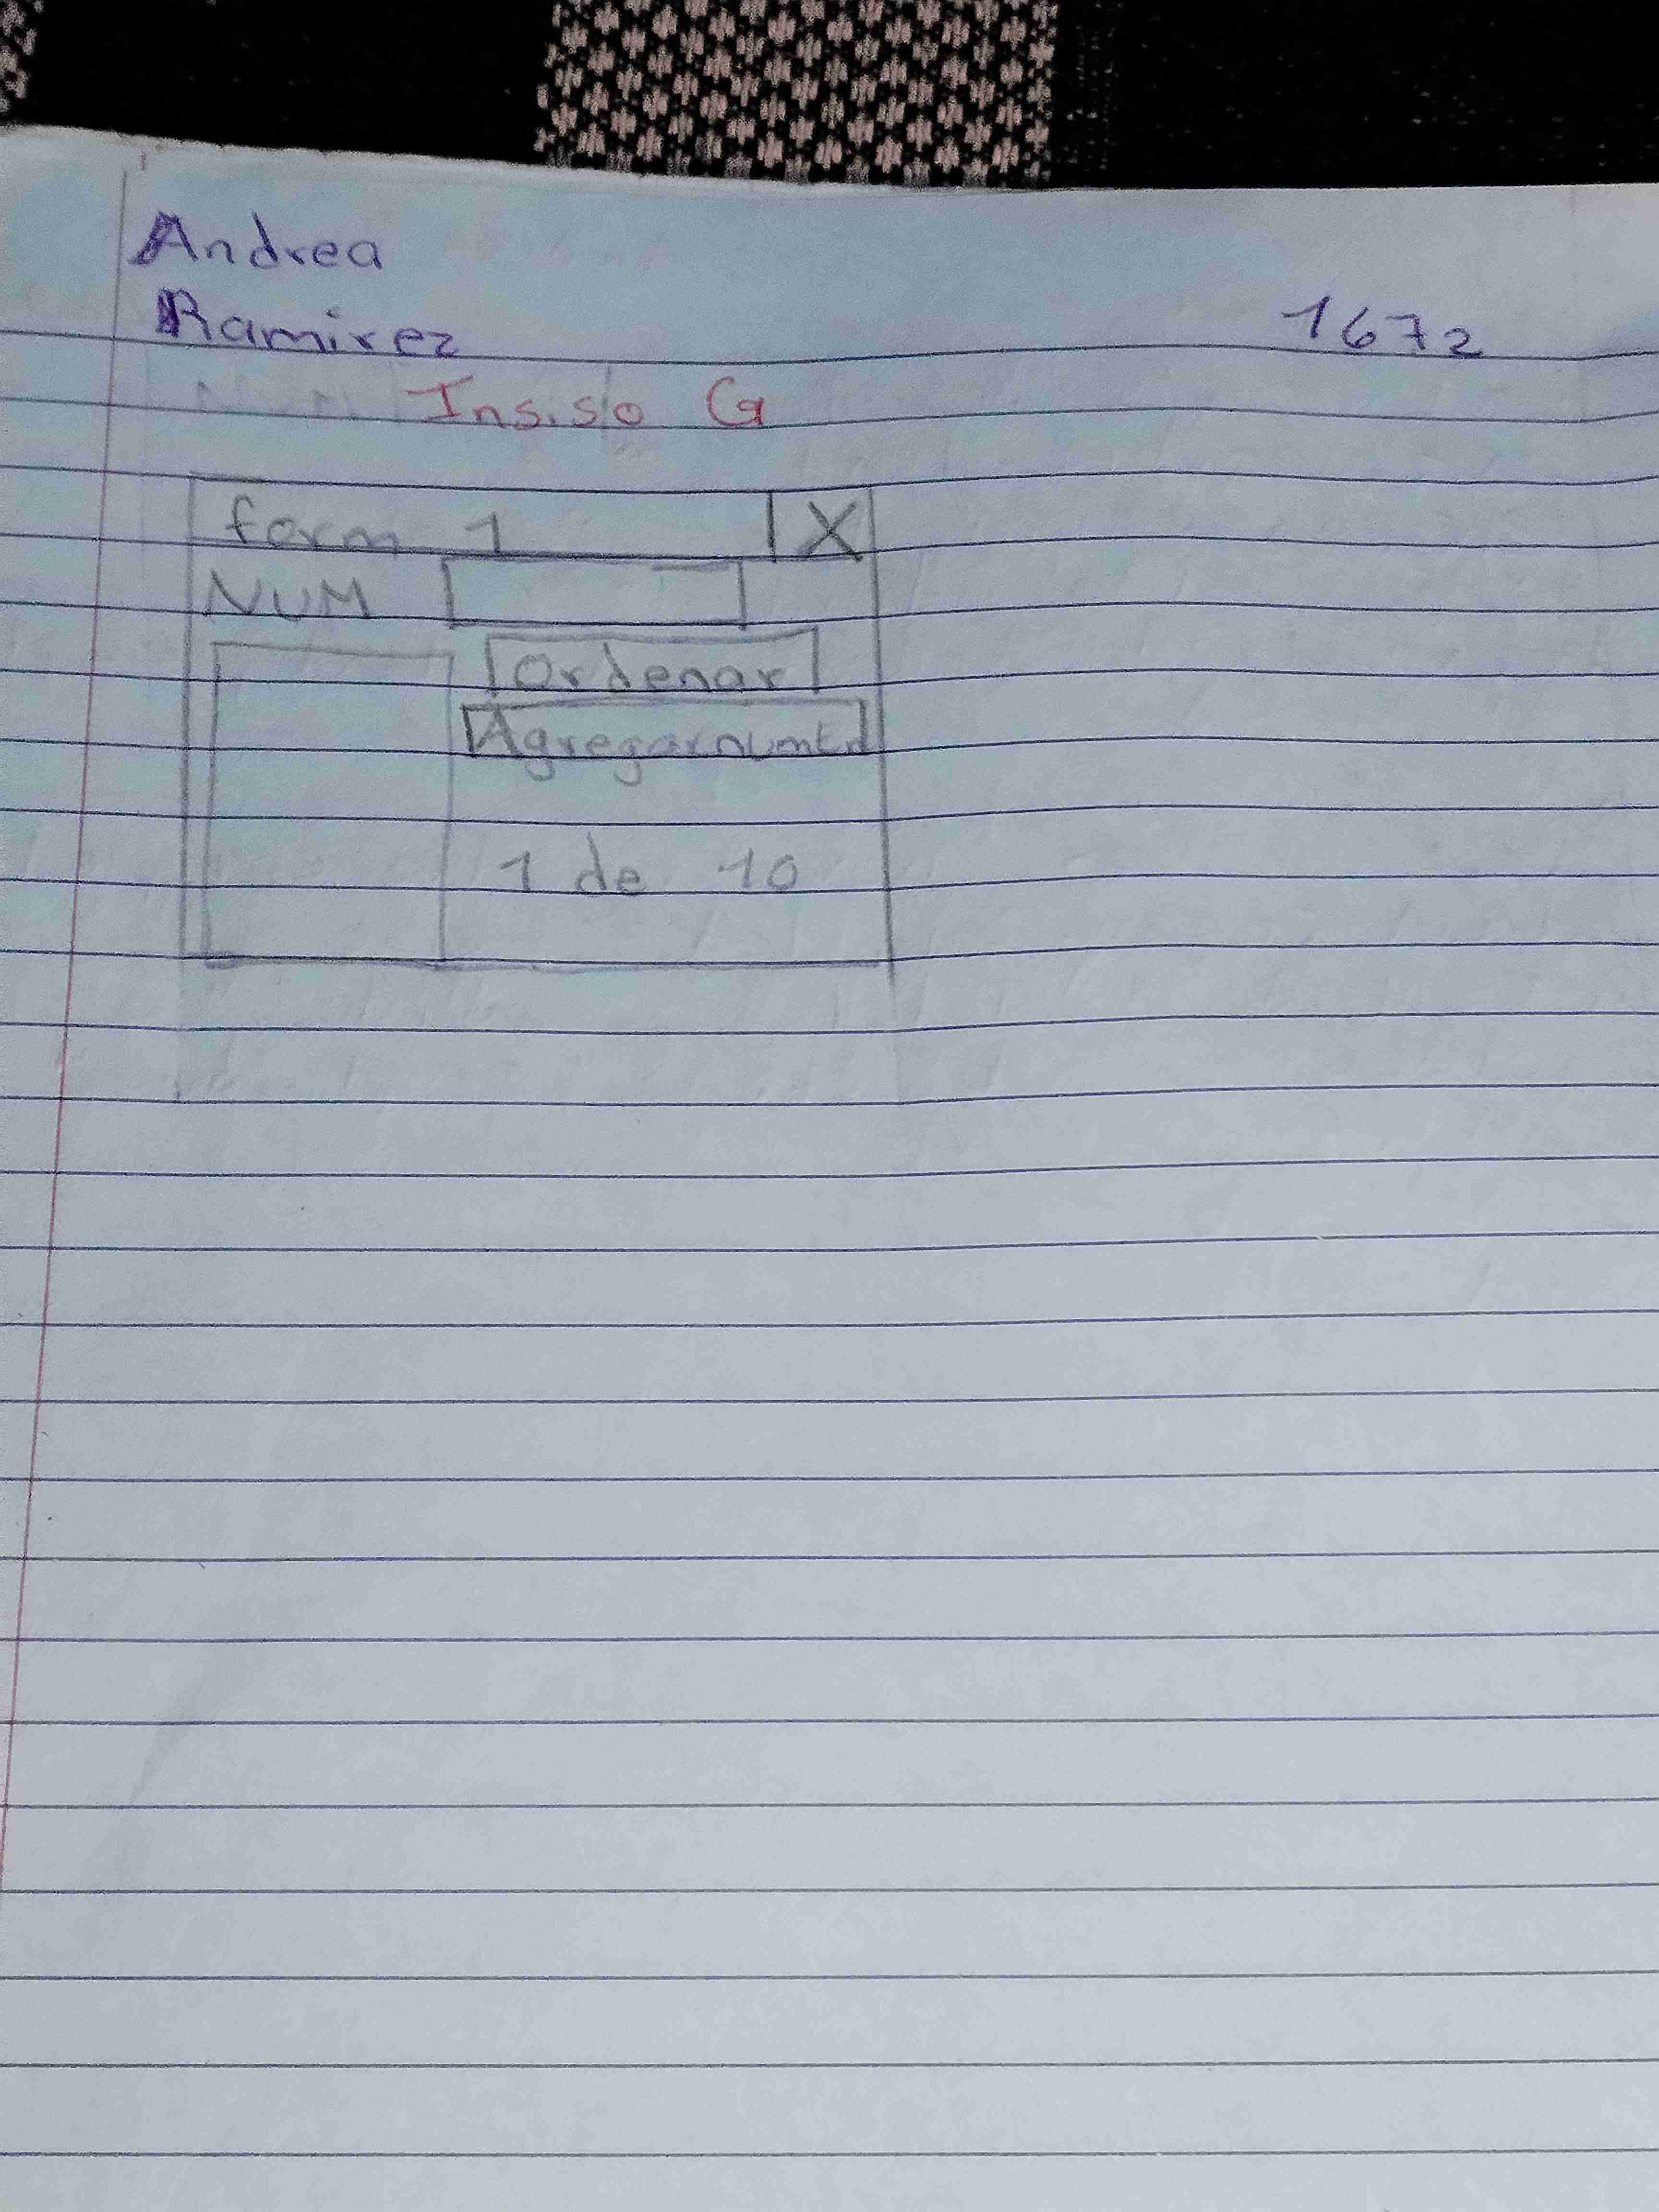 Andrea
Ramirez 1672
Insiso G
form 1 X
NUM
Ordenar
1 de 10